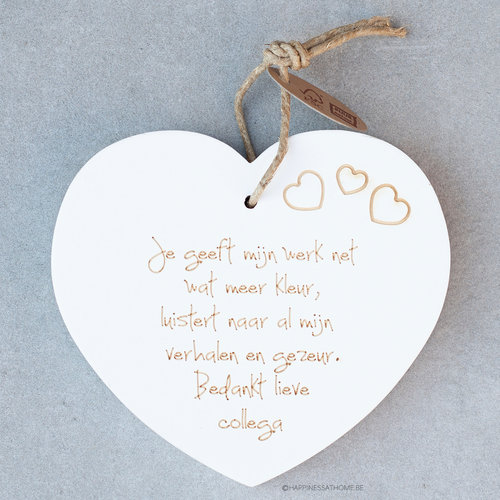 Je geeft mijn werk net
wat meer kleur,
luistert naar al mijn
verhalen en gezeur.
Bedankt lieve
collega
©HAPPINESSATHOME.BE